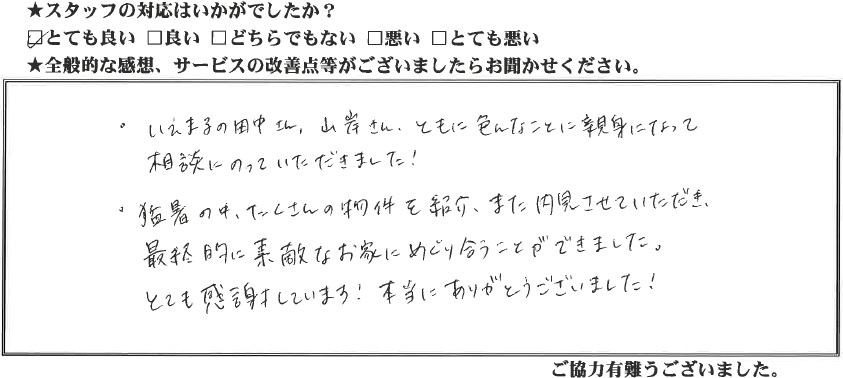 ★スタッフの対応はいかがでしたか？
☑とても良い □良い □どちらでもない □悪い □とても悪い
★全般的な感想、サービスの改善点等がございましたらお聞かせください。
・いえまるの田中さん、山岸さん、ともに色んなことに親身になって
相談にのっていただきました！
・猛暑の中、たくさんの物件を紹介、また内見させていただき、
最終的に素敵なお家にめぐり合うことができました。
とても感謝しています！本当にありがとうございました！
ご協力有難うございました。